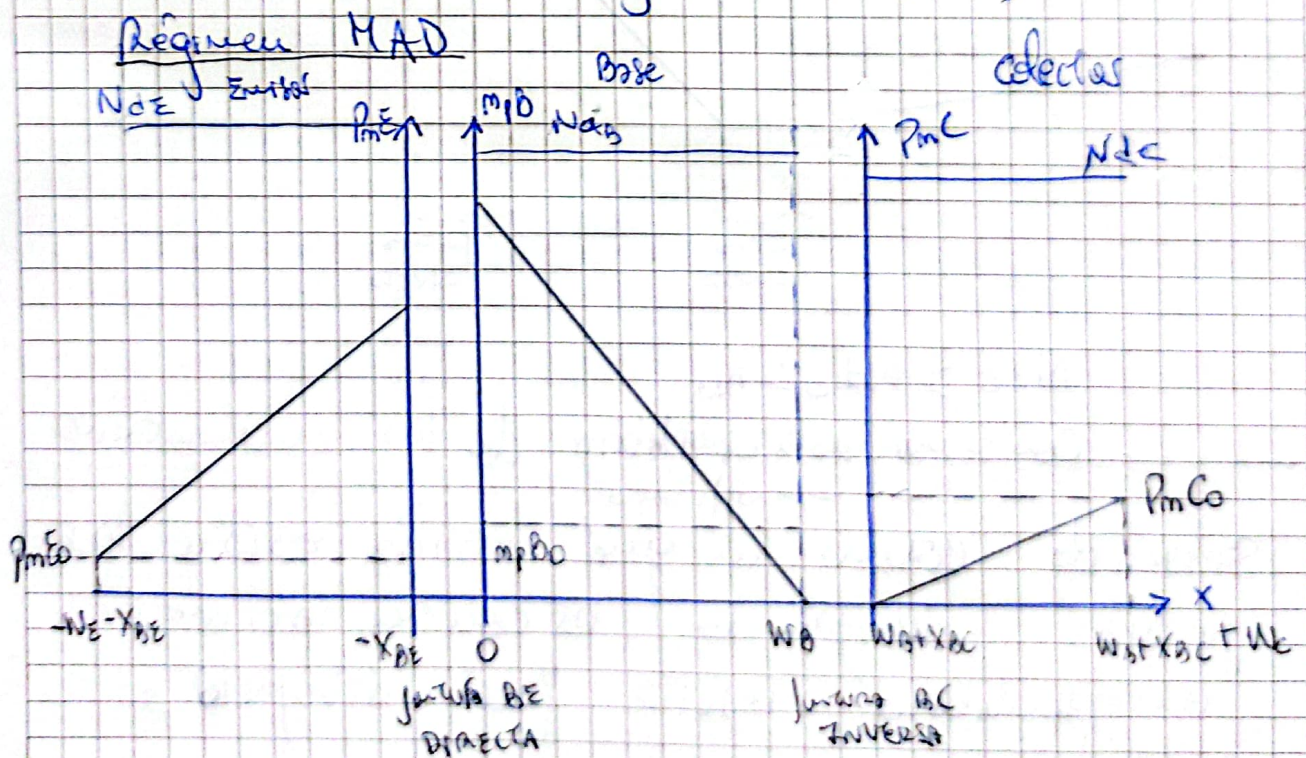 Régimen MAD
Base
colector
NdE Emisor
PnE
npB
NaB
PnC
Ndc
PnCo
PnEo
npBo
x
-WE-XBE
-XBE
0
WB
WB+XBC
WB+XBC+Wc
juntura BE
DIRECTA
juntura BC
INVERSA